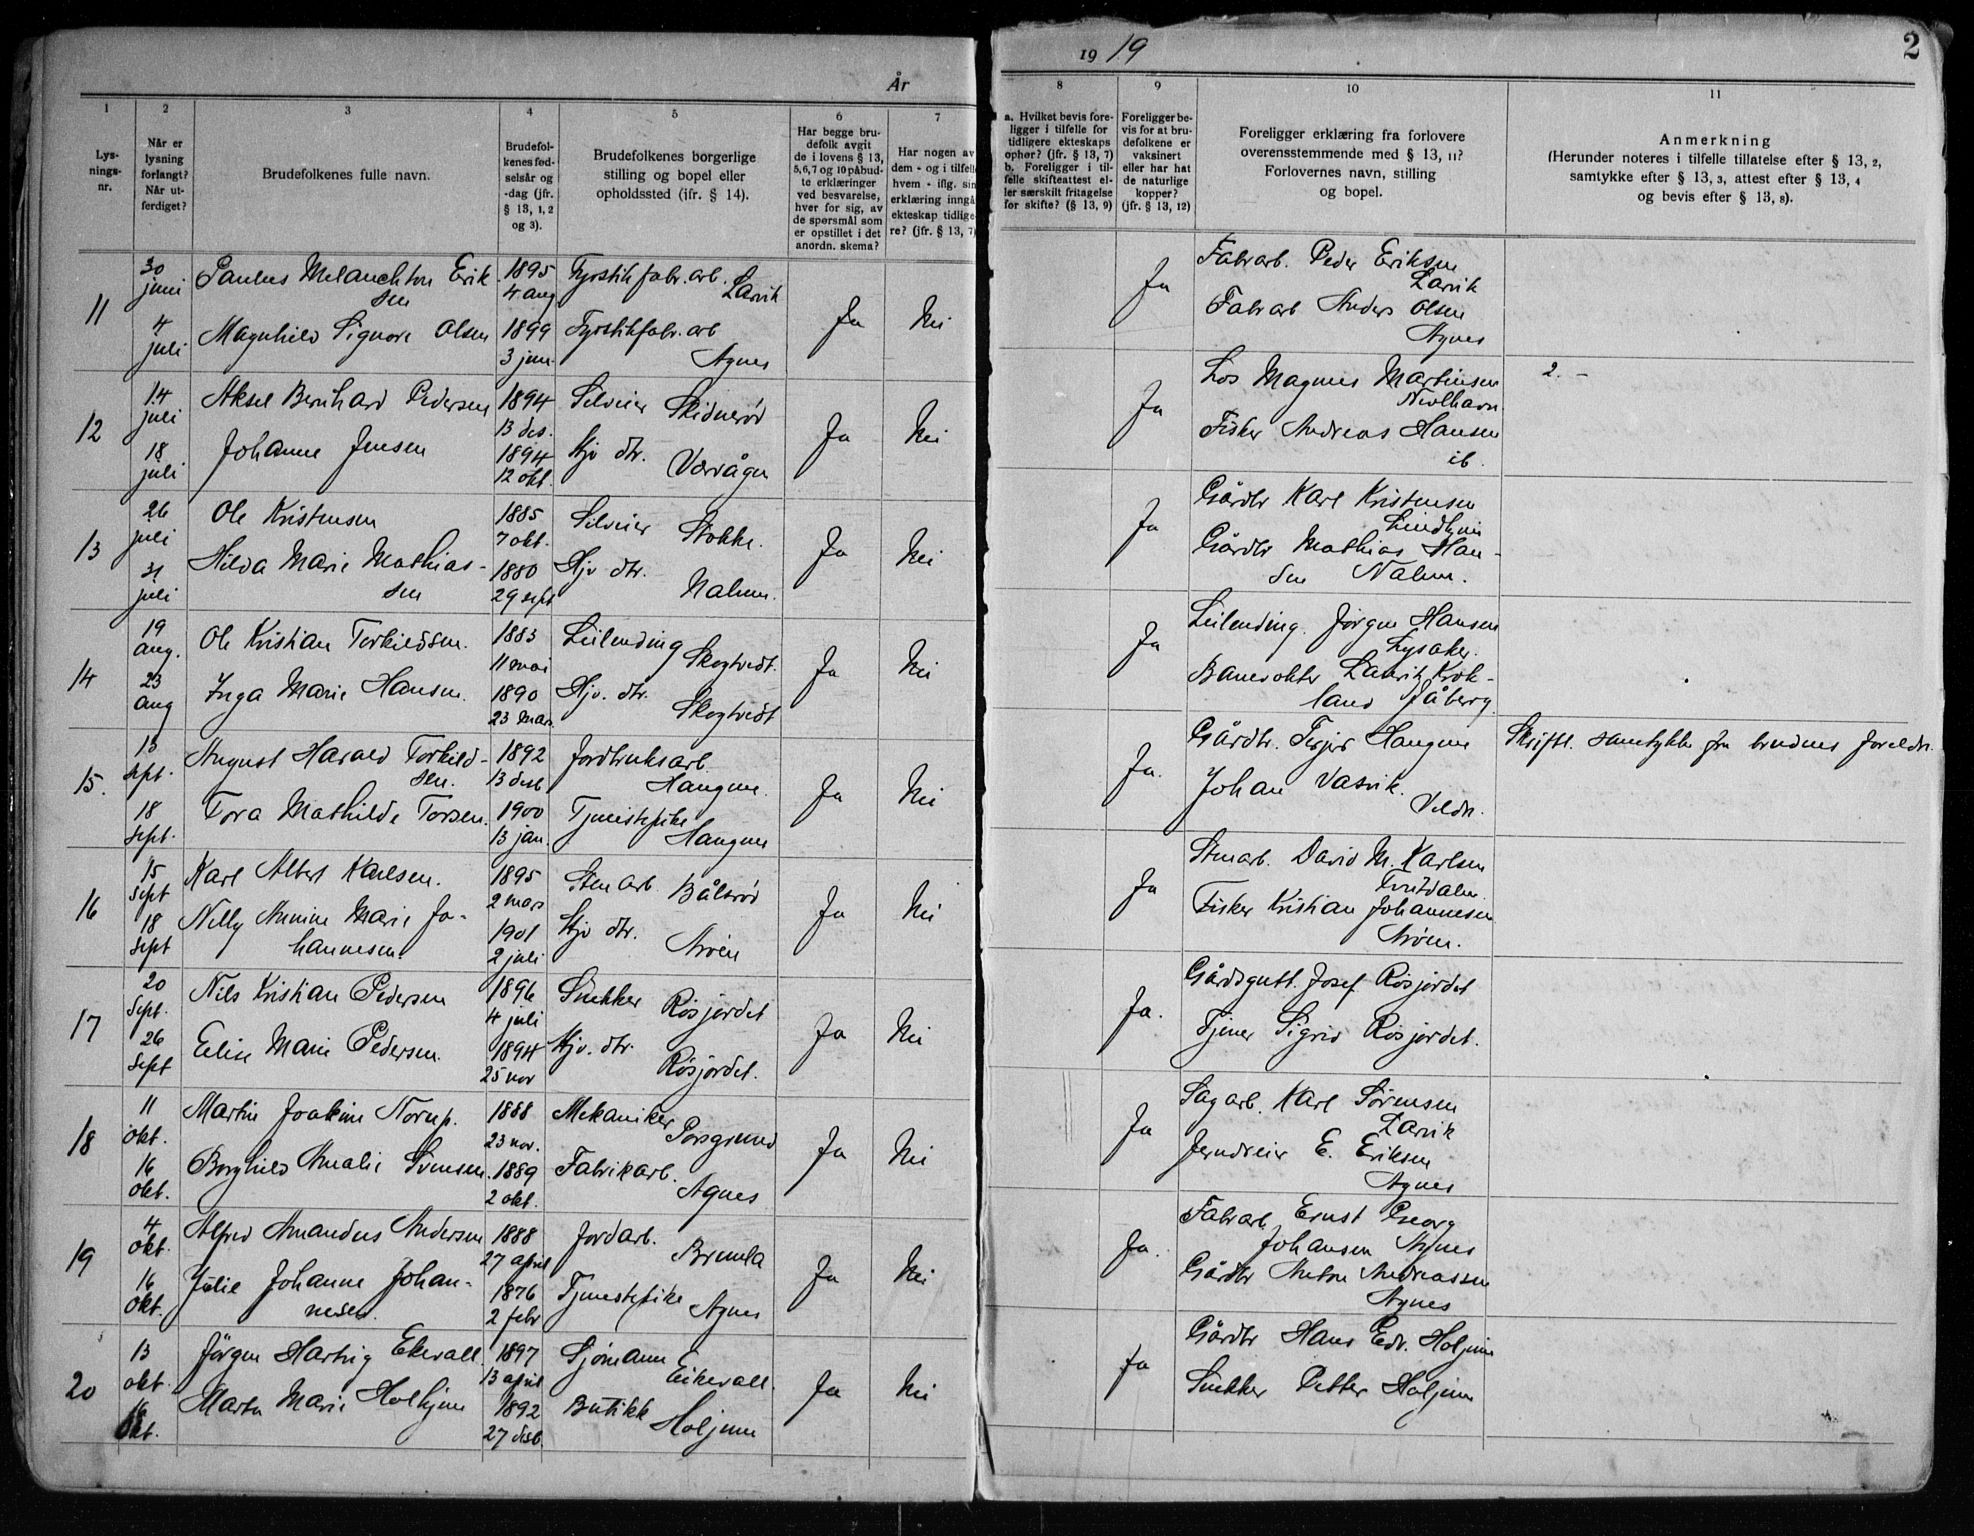 År
19 19
2
1
2
3
4
5
6
7
8
9
10
11
Lys-
nings-
nr.
Når er
lysning
forlangt?
Når ut-
ferdiget?
Brudefolkenes fulle navn.
Brudefol-
kenes fød-
selsår og
-dag (jfr.
§ 13, 1, 2
og 3).
Brudefolkenes borgerlige
stilling og bopel eller
opholdssted (jfr. § 14).
Har begge bru-
defolk avgit
de i lovens § 13,
5, 6, 7 og 10 påbud-
te erklæringer
ved besvarelse,
hver for sig, av
de spørsmål som
er opstillet i det
anordn. skema?
Har nogen av
dem - og i tilfelle
hvem - iflg. sin
erklæring inngå
ekteskap tidlige-
re? (jfr. § 13, 7)
a. Hvilket bevis fore-
ligger i tilfelle for
tidligere ekteskaps
ophør? (jfr. § 13, 7)
b. Foreligger i til-
felle skifteattest el-
ler særskilt fritagelse
for skifte? (§ 13, 9)
Foreligger be-
vis for at bru-
defolkene er
vaksinert
eller har hat
de naturlige
kopper?
(jfr. § 13, 12)
Foreligger erklæring fra forlovere
overensstemmende med § 13, 11?
Forlovernes navn, stilling
og bopel.
Anmerkning
(Herunder noteres i tilfelle tillatelse efter § 13, 2,
samtykke efter § 13, 3, attest efter § 13, 4
og bevis efter § 13, 8).
11
30 juni
4 juli
Paulus Melanchton Erik
sen
Magnhild Signore Olsen
1895
4 aug
1899
3 jun.
Fyrstikfabr.arb.
Larvik
Fyrstikfabr.arb
Agnes
Ja
Nei
Ja
Fabrarb. Peder Eriksen
Larvik
Fabrarb Anders Olsen
Agnes
12
14 juli
18 juli
Aksel Bernhard Pedersen
Johanne Jensen
1894
13 des.
1894
12 okt.
Selveier Skidnerød
Hjv dtr. Værvågen
Ja
Nei
Ja
Los Magnus Martinsen
Nevlhavn
Fisker Andreas Hansen
ib.
2. -
13
26 juli
31 juli
Ole Kristensen
Hilda Marie Mathias-
sen
1885
7 okt.
1880
29 sept
Selveier Stokke.
Hjv dtr.
Nalum.
Ja
Nei
Ja
Gårdbr Karl Kristensen
Lindhjem
Gårdbr Mathias Han-
sen Nalum.
14
19 aug.
23 aug
Ole Kristian Torkildsen.
Inga Marie Hansen.
1883
11 mai
1890
23 mars
Leilending
Skogtvedt.
Hjv. dtr.
Skogtvedt
Ja
Nei
Ja
Leilending. Jørgen Hansen
Lysaker.
Banevokter Laurik Krok-
land Jåberg.
15.
13 sept.
18 sept.
August Harald Torkild-
sen.
Tora Mathilde Torsen.
1892
13 desb
1900
13 jan.
Jordbruksarb.
Haugene.
Tjenestepike
Haugene
Ja
Nei
Ja.
Gårdbr. Terjer Haugene
Johan Vasvik.
Veldre.
Skriftl. samtykke fra brudens foreldre.
16
15 sept
18 sept
Karl Albert Karlsen.
Nelly Annine Marie Jo-
hannesen.
1895
2 mars
1901
2 juli
Stenarb. Bålsrød
Hjv dtr.
Arøen
Ja
Nei
Ja
Stenarb. David M. Karlsen
Tvetdalen
Fisker Kristian Johannesen
Arøen.
17
20 Sept.
26 Sept
Nils Kristian Pedersen
Elise Marie Pedersen.
1896
4 juli
1894
25 nov
Snekker Røsjordet
Hjv. dtr.
Røsjordet.
Ja
Nei
Ja.
Gårdsgutt. Josef Røsjordet
Tjener Sigrid Røsjordet.
18
11 okt.
16 okt.
Martin Joakim Norup.
Borghild Amalie Svensen.
1888
23 nov.
1889
2 okt.
Mekaniker
Porsgrund
Fabrikarb.
Agnes
Ja
Nei
Ja
Sagarb. Karl Sørensen
Larvik
Jerndreier E. Eriksen
Agnes
19
4 okt.
16 okt.
Alfred Amandus Andersen
Julie Johanne Johan-
nesen.
1888
27 april
1876
2 febr
Jordarb.
Brunla
Tjenestepike
Agnes
Ja
Nei
Ja.
Fabrarb. Ernst Georg
Johansen Agnes
Gårdbr Anton Andreassen
Agnes
20
13 okt.
16 okt.
Jørgen Hartvig Ekevall.
Marta Marie Holhjem
1897
13 april
1892
27 desb.
Sjømann
Eikevall.
Butikk
Holjem
Ja
Nei
Ja
Gårdbr Hans Edv. Holjem
Snekker Petter Holjem